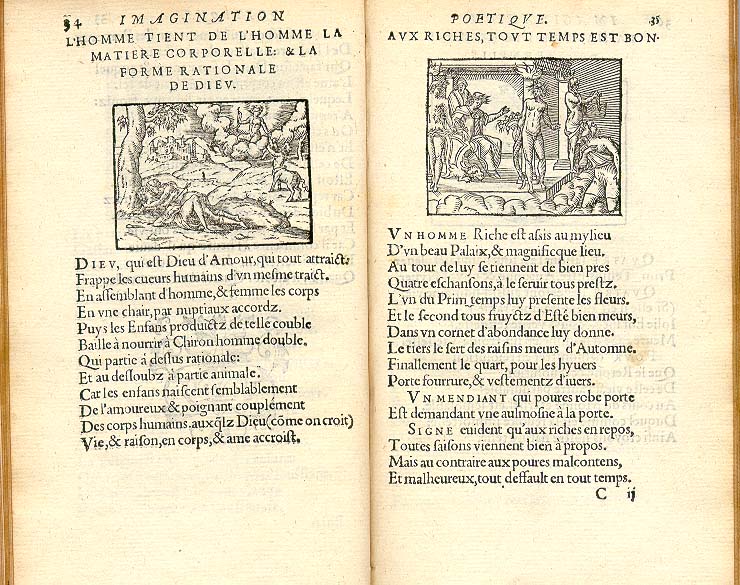 34 IMAGINATION
L'HOMME TIENT DE L'HOMME LA
MATIERE CORPORELLE: & LA
FORME RATIONALE
DE DIEV.
DIEV, qui est Dieu d'Amour, qui tout attraict:
Frappe les cueurs humains d'vn mesme traict.
En assemblant d'homme, & femme les corps
En vne chair, par nuptiaux accordz.
Puys les Enfans produictz de telle couble
Baille à nourrir à Chiron homme double.
Qui partie à dessus rationale:
Et au dessoubz à partie animale.
Car les enfans naiscent semblablement
De l'amoureux & poignant couplément
Des corps humains. auxq̃lz Dieu (cõme on croit)
Vie, & raison, en corps, & ame accroist.
POETIQVE. 35
AVX RICHES, TOVT TEMPS EST BON.
VN HOMME Riche est assis au mylieu
D'vn beau Palaix, & magnificque lieu.
Au tour de luy se tiennent de bien pres
Quatre eschansons, à le seruir tous prestz.
L'vn du Prim_temps luy presente les fleurs.
Et le second tous fruyctz d'Esté bien meurs,
Dans vn cornet d'abõdance luy donne.
Le tiers le sert des raisins meurs d'Automne.
Finallement le quart, pour les hyuers
Porte fourrure, & vestementz d'iuers.
VN MENDIANT qui poures robe porte
Est demandant vne aulmosne à la porte.
SIGNE euident qu'aux riches en repos,
Toutes saisons viennent bien à propos.
Mais au contraire aux poures malcontens,
Et malheureux, tout deffault en tout temps.
C ij